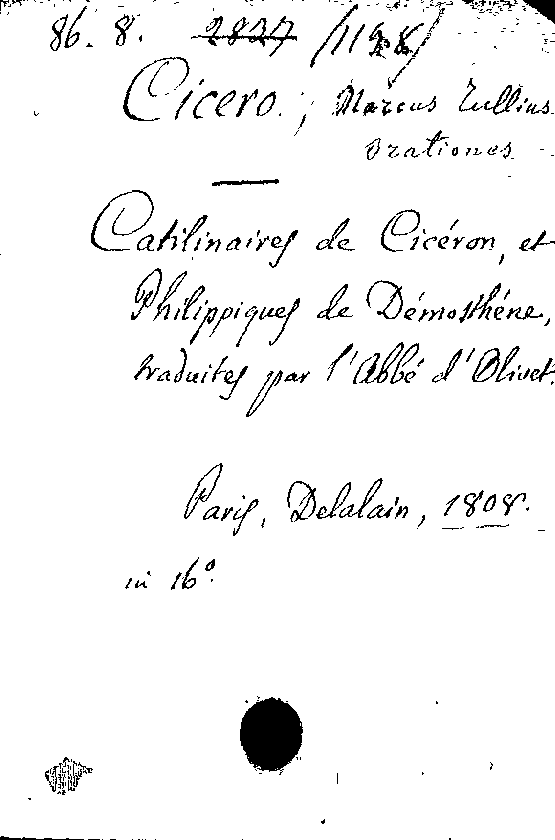 86. 8. 2827 /1128/
Cicero, Marcus Tullius
Orationes
Catilinaires de Cicéron, et
Philippiques de Démosthéne,
traduites par l'Abbé d'Olivet.
Paris, Delalain, 1808.
in 16º.